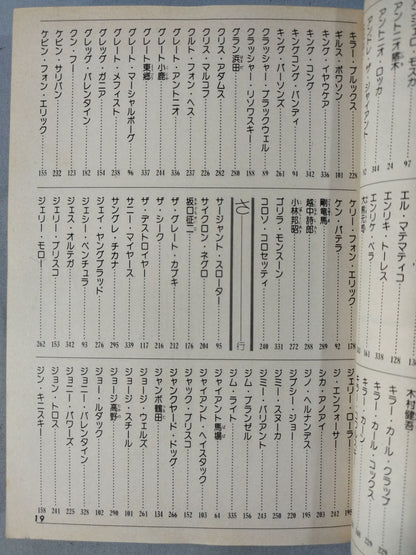 キラー・ブルックス 228
ギルス・ポワソン 101
キング・イヤウケア 336
キング・コング 342
キングコング・バンディ 91
キング・パーソンズ 94
クラッシャー・ブラックウェル 89
クラッシャー・リソワスキー 88
グラン浜田 280
クリス・アダムス 286
クリス・マルコフ 282
クルト・フォン・ヘス 237
グレート・アントニオ 244
グレート小鹿 337
グレート東郷 336
グレート・マーシャルボーグ 96
グレート・メフィスト 238
グレッグ・ガニア 154
グレッグ・バレンタイン 182
クン・フー 123
ケビン・サリバン 232
ケビン・フォン・エリック 155
ケリー・フォン・エリック 178
ケン・パテラ 92
剛竜馬 289
越中詩郎 288
小林邦昭 272
ゴリラ・モンスーン 331
コロソ・コロセッティ 240
さ行
サージャント・スローター 95
サイクロン・ネグロ 204
坂口征二 175
ザ・グレート・カブキ 212
ザ・シーク 116
ザ・デストロイヤー 117
サニー・マイヤース 339
サングレ・チカナ 295
ジェイ・ヤングブラッド 276
ジェシー・ベンチュラ 93
ジェス・オルテガ 342
ジェリー・ブリスコ 153
ジェリー・モロー 262
ジェリー・ローラー 195
ジ・エンフォーサー 242
シカ・アノアイ 205
ジノ・ヘルナンデス 194
ジプシー・ジョー 220
ジミー・スヌーカ 250
ジミー・バリアント 243
ジム・ブランゼル 156
ジム・ライト 335
ジャイアント馬場 64
ジャイアント・ヘイスタック 103
ジャック・ブリスコ 152
ジャンクヤード・ドッグ 266
ジャンボ鶴田 134
ジョージ・ウェルズ 261
ジョージ・スチール 101
ジョージ高野 290
ジョー・ルダック 102
ジョニー・バレンタイン 328
ジョニー・パワーズ 225
ジョン・トロス 241
ジン・キニスキー 158
19
モスカ 97
アントニオ猪木 24
アントニオ・ロッカ 344
アンドレ・ザ・ジャイアント
エル・マテマティコ
エンリキ・トーレス 128
エンリケ・ベラ 338
木村健吾
キラー・カール・クラップ
キラー・カール・コックス
キラー・カーン